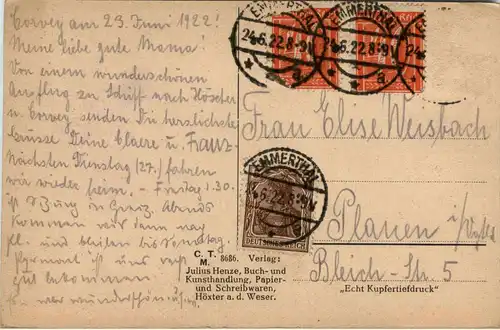 Corvey am 23. Juni 1922!
Meine liebe gute Mama!
Von einem wunderschönen
Ausflug zu Schiff nach Höxter
u. Corvey senden Dir herzlichste
Grüsse Deine Claere u. Franz.
Nächsten Dienstag (27.) fahren
wir wieder heim. - Freitag 1.30.
Abends
kommen wir dann nach
Pl. und bleiben bis Sonntag.
Pyrmont ist uns
gut bekommen.
wunderschön
EMMERTHAL
24.6.22.8-9V
a
EMMERTHAL
24.6.22.8-9V
a
Frau Elise Weisbach
EMMERTHAL
6.22.8-9V
a
DEUTSCHES REICH
Plauen i/Vogtl.
Bleich-Str. 5
C. T. M. 8686. Verlag:
Julius Henze, Buch- und
Kunsthandlung, Papier-
und Schreibwaren,
Höxter a. d. Weser.
„Echt Kupfertiefdruck"